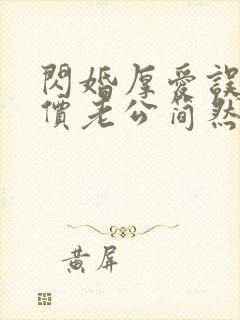 閃婚厚愛誤
價老公簡然
黃屏